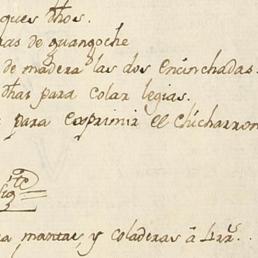 ques thos.
ras de guangoche
de madera las dos encinchadas.
thas para colar legias.
para exprimir el chicharron
a mantas, y coladeras á 4 rrs.